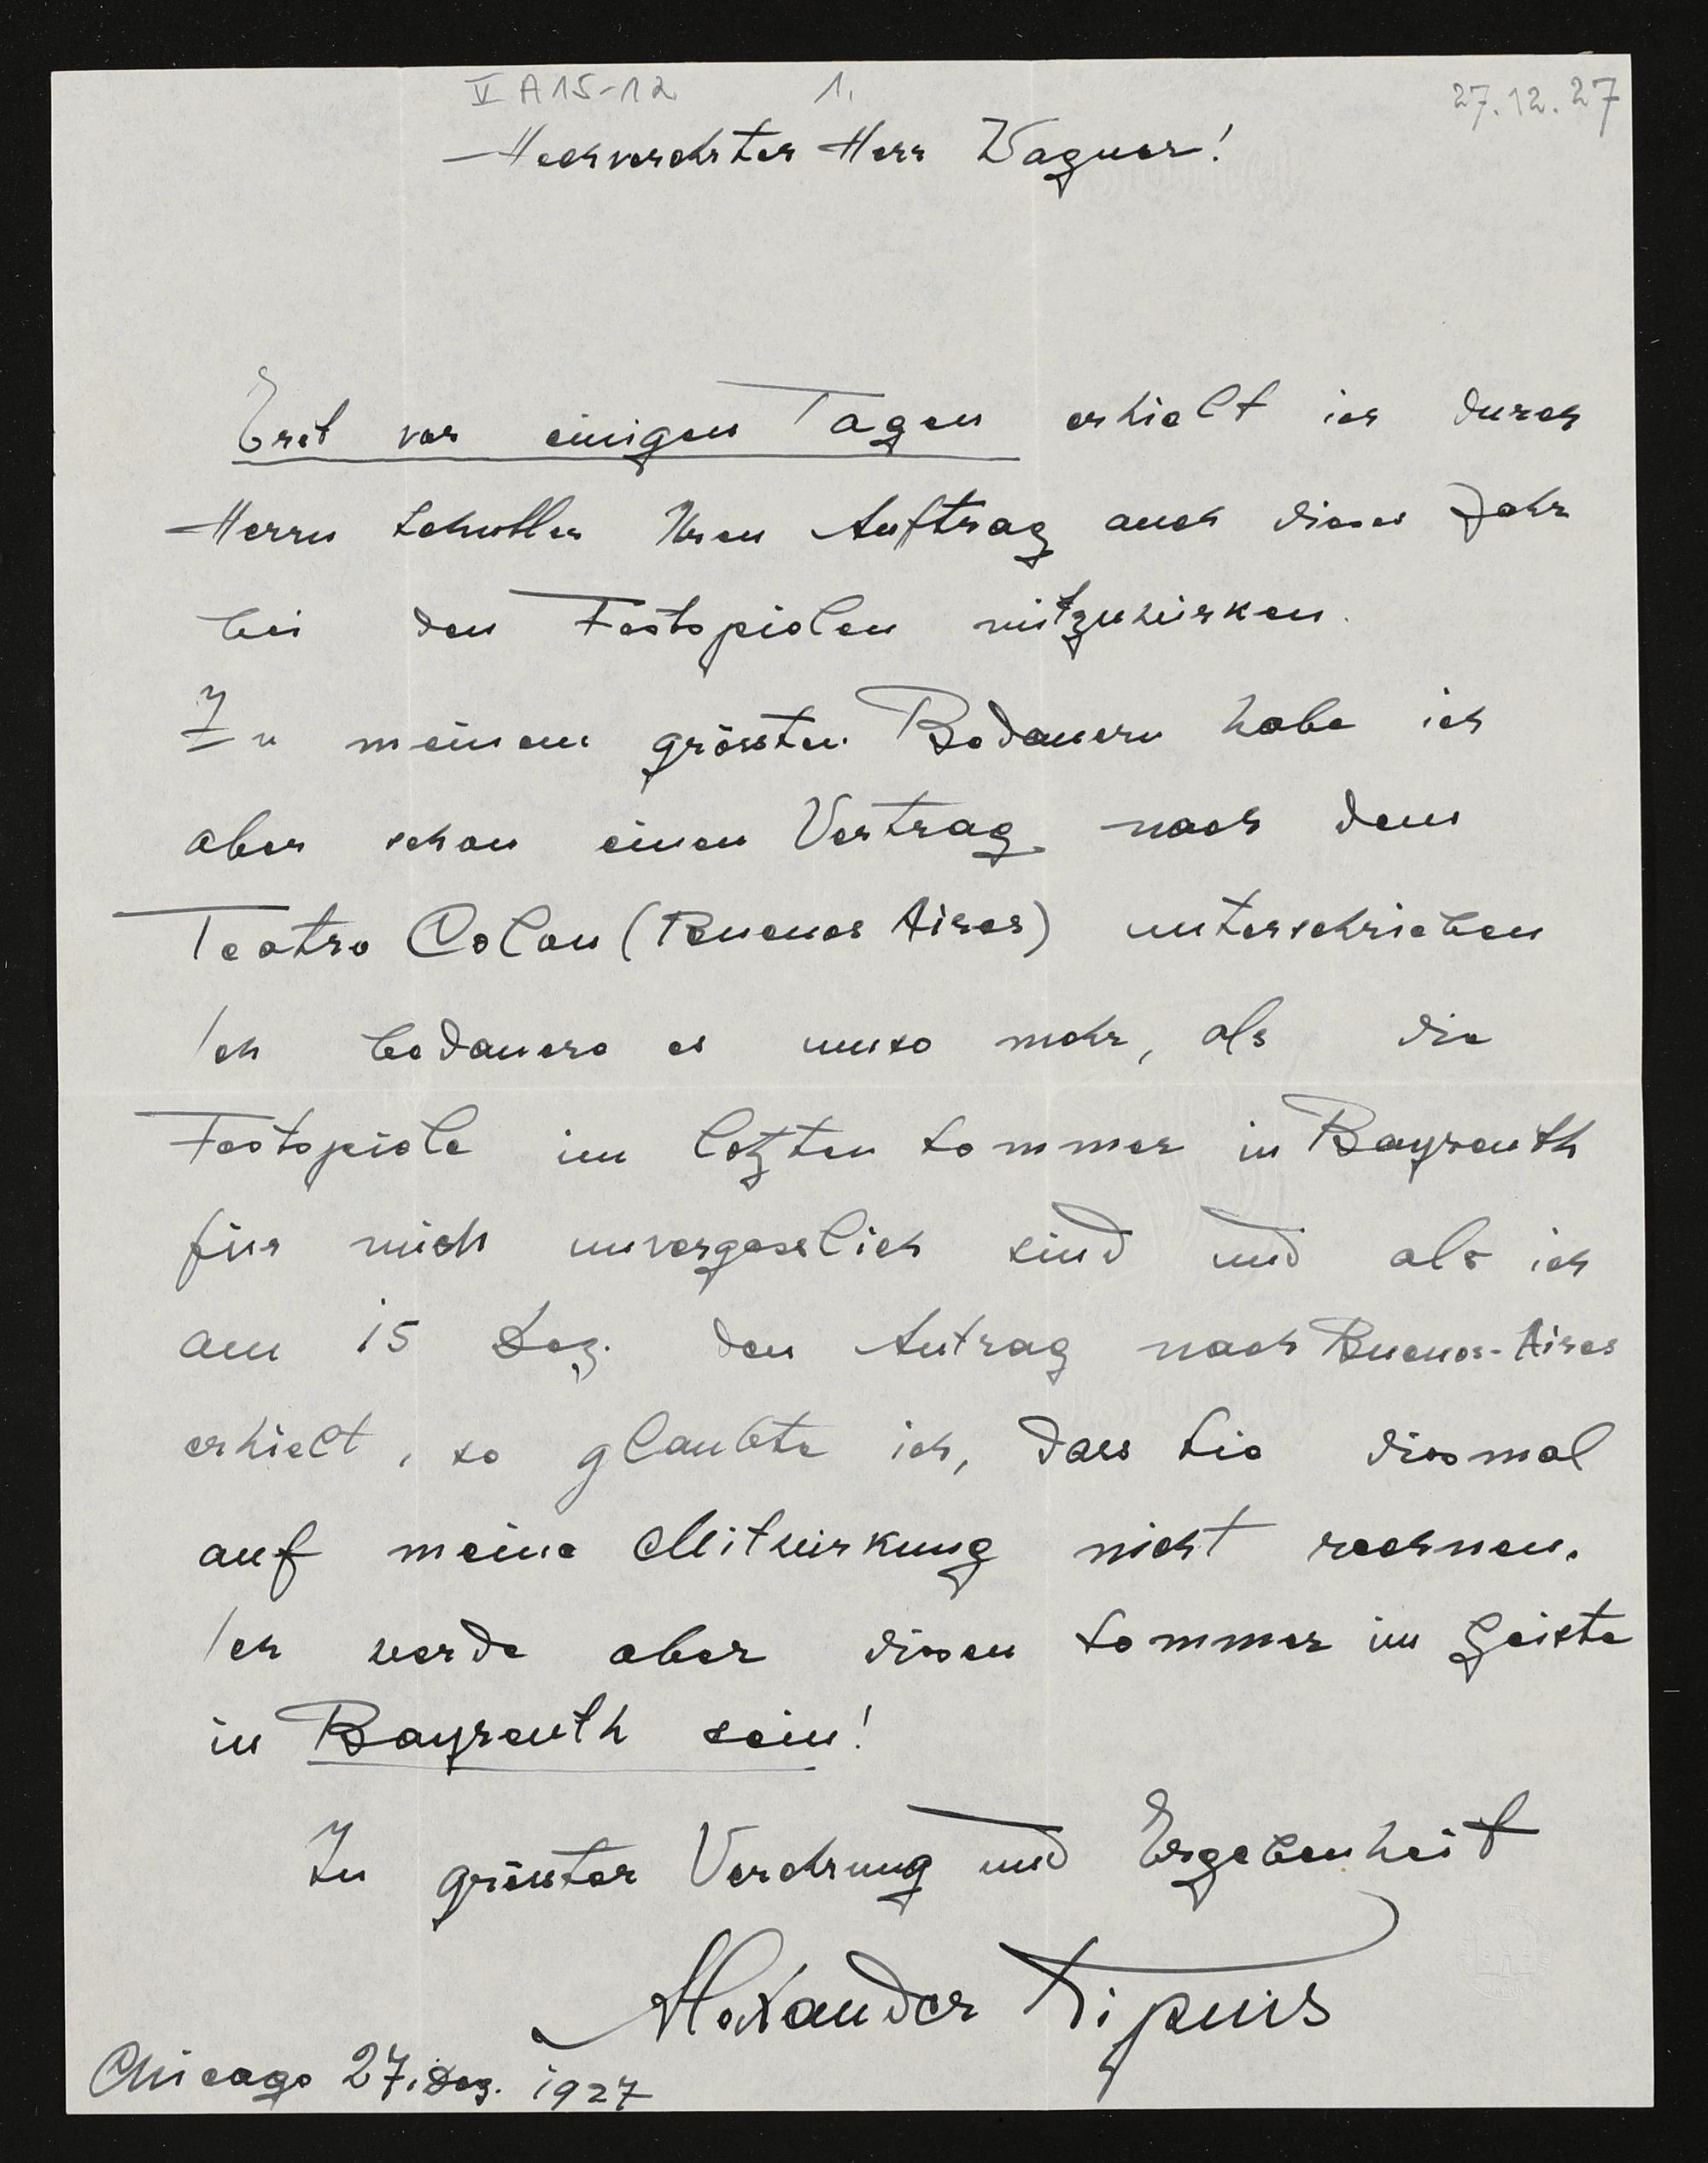 V A 15-12 1. 27.12.27
Hochverehrter Herr Wagner!
Erst vor einigen Tagen erhielt ich durch
Herrn Schuller Ihren Auftrag auch dieses Jahr
bei den Festspielen mitzuwirken.
Zu meinem grössten Bedauern habe ich
aber schon einen Vertrag nach dem
Teatro Colon (Buenos Aires) unterschrieben
Ich bedauere es umso mehr, als die
Festspiele im letzten Sommer in Bayreuth
für mich unvergesslich sind und als ich
am 15 Dez. den Antrag nach Buenos-Aires
erhielt, so glaubte ich, dass Sie diesmal
auf meine Mitwirkung nicht rechnen.
Ich werde aber diesen Sommer im Geiste
in Bayreuth sein!
In grösster Verehrung und Ergebenheit
Alexander Kipnis
Chicago 27. Dez. 1927